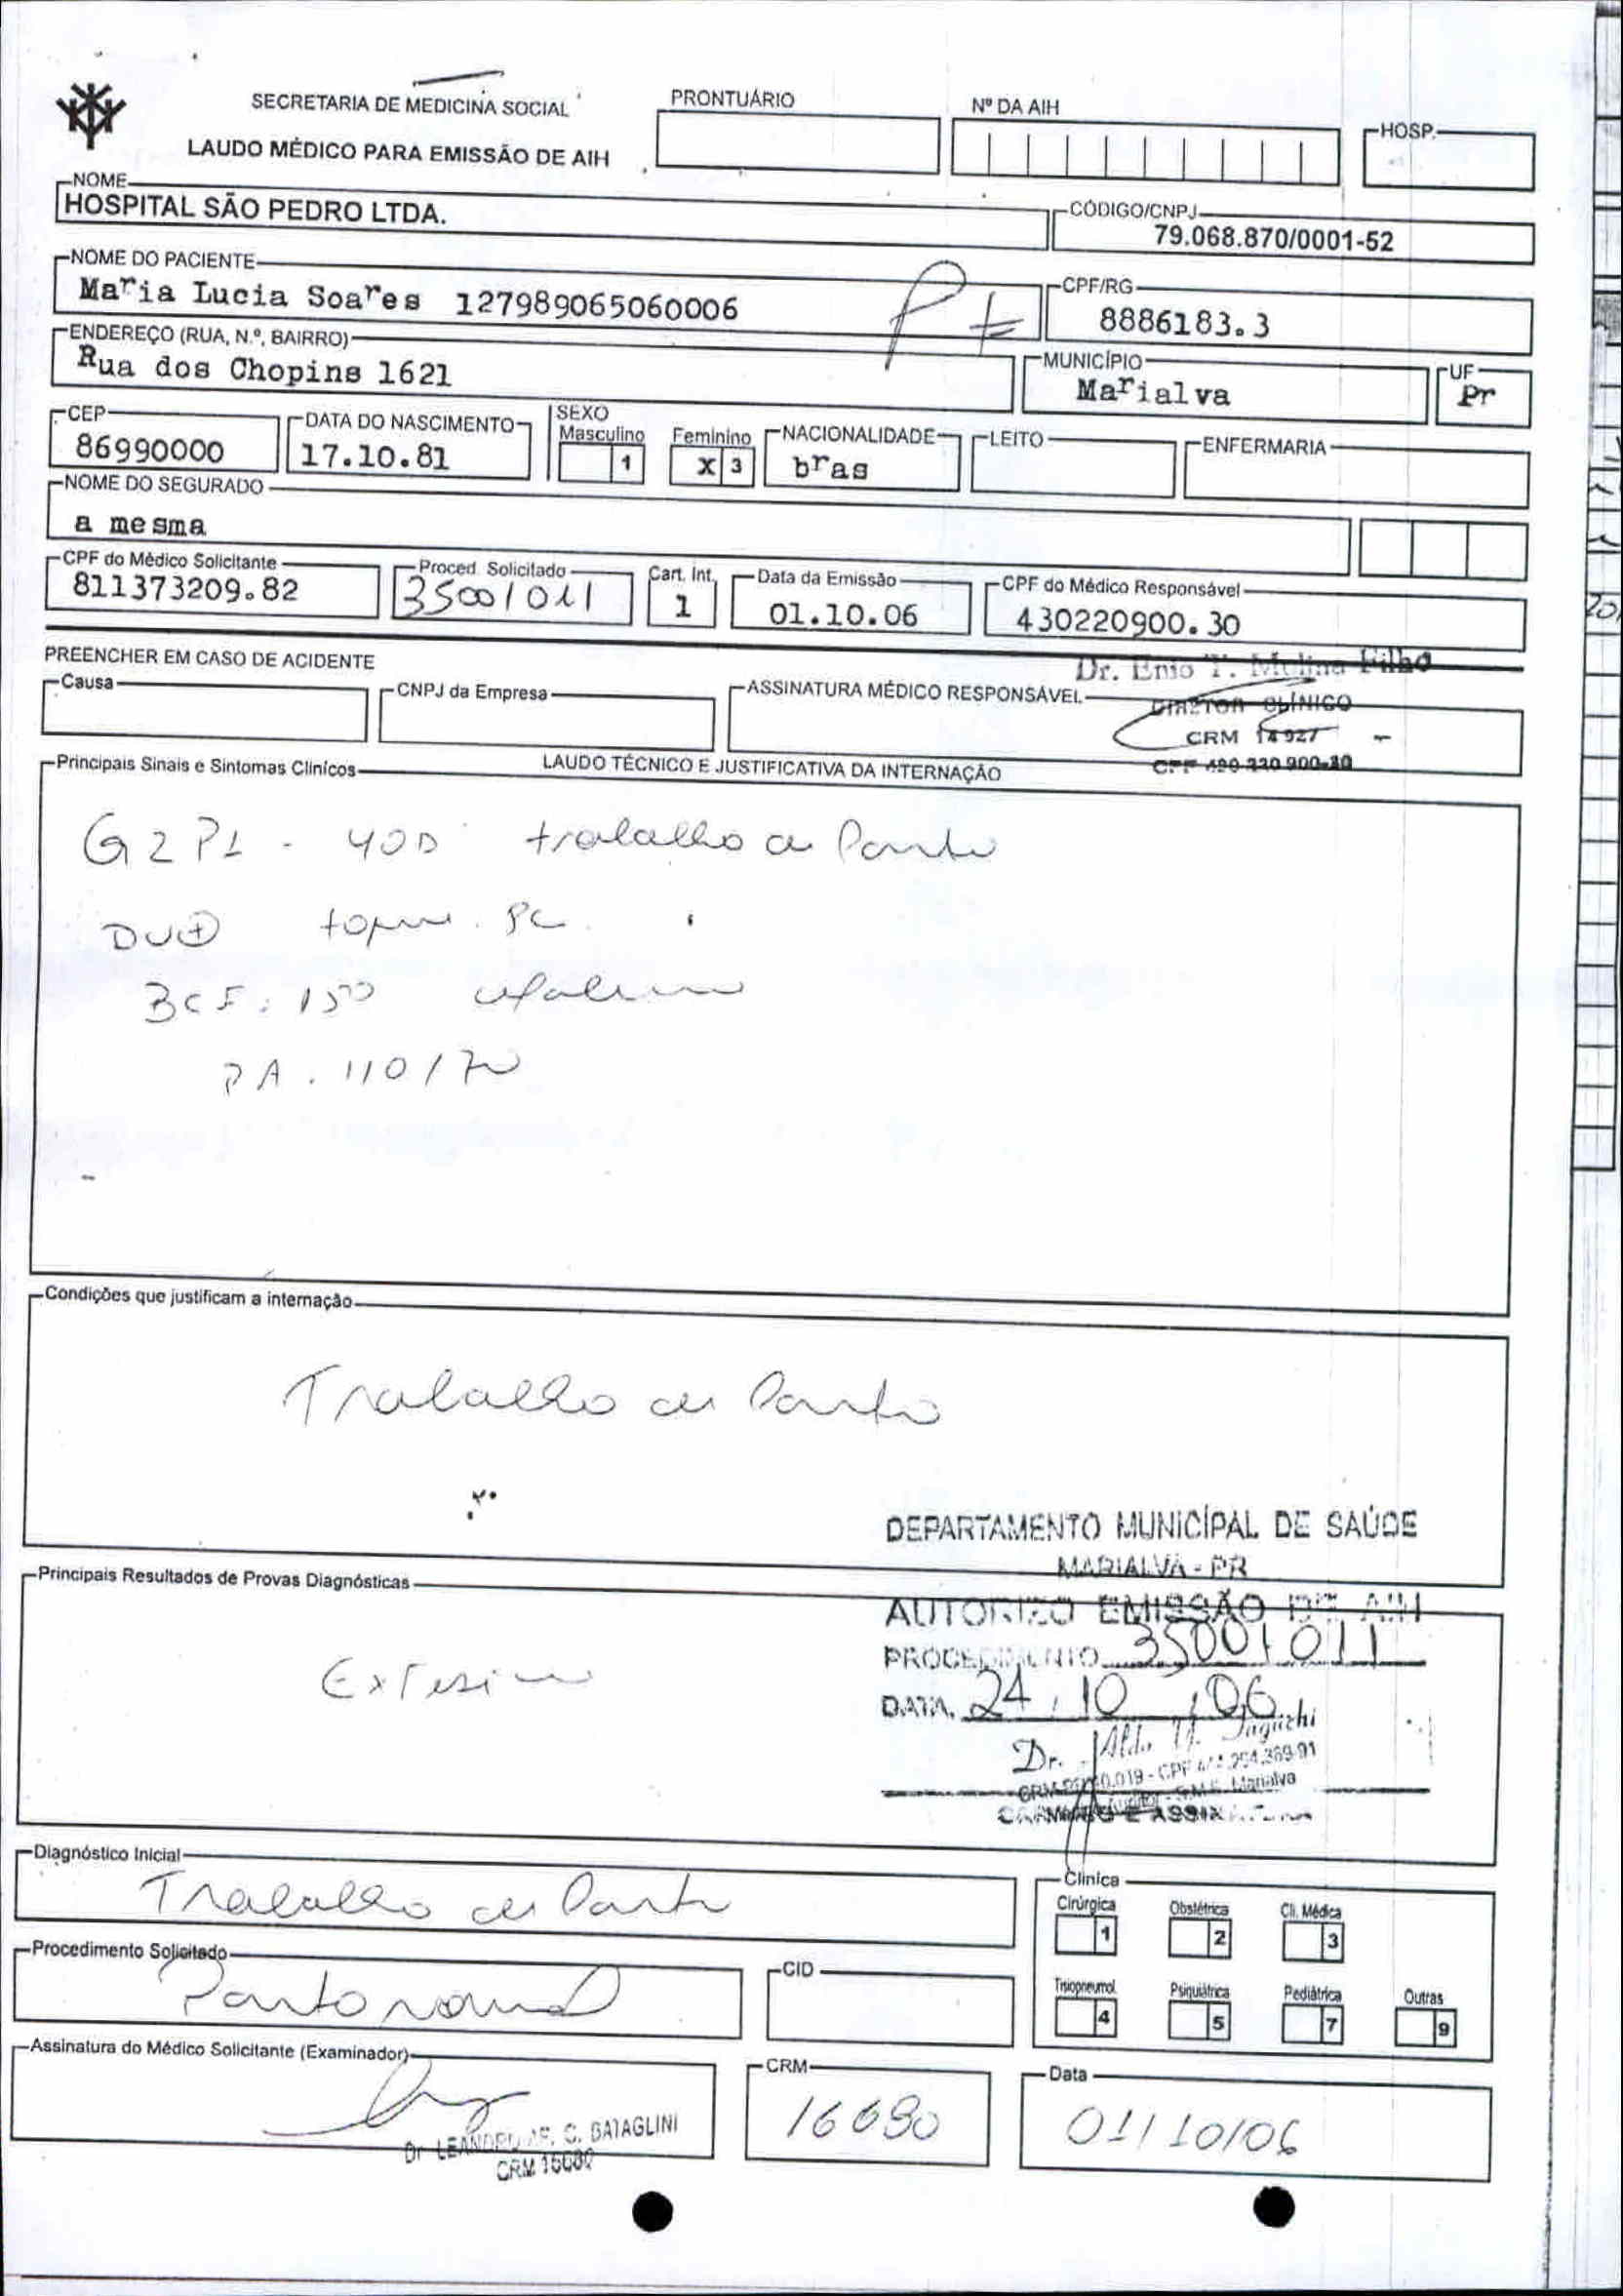 SECRETARIA DE MEDICINA SOCIAL
LAUDO MÉDICO PARA EMISSÃO DE AIH
PRONTUÁRIO
Nº DA AIH
HOSP.
NOME
HOSPITAL SÃO PEDRO LTDA.
CÓDIGO/CNPJ
79.068.870/0001-52
NOME DO PACIENTE
Maria Lucia Soares 127989065060006
CPF/RG
8886183.3
ENDEREÇO (RUA, N.º, BAIRRO)
Rua dos Chopins 1621
MUNICÍPIO
Marialva
UF
Pr
CEP
86990000
DATA DO NASCIMENTO
17.10.81
SEXO
Masculino 1
Feminino x 3
NACIONALIDADE
bras
LEITO
ENFERMARIA
NOME DO SEGURADO
a mesma
CPF do Médico Solicitante
811373209.82
Proced. Solicitado
35001011
Cart. Int.
1
Data da Emissão
01.10.06
CPF do Médico Responsável
430220900.30
PREENCHER EM CASO DE ACIDENTE
Causa
CNPJ da Empresa
ASSINATURA MÉDICO RESPONSÁVEL
Dr. Enio T. Molina Filho
DIRETOR CLÍNICO
CRM 14927
Principais Sinais e Sintomas Clínicos
LAUDO TÉCNICO E JUSTIFICATIVA DA INTERNAÇÃO
G2P1 - 40s trabalho de Parto
DU+
BCF: 150 cefalico
PA. 110/70
Condições que justificam a internação
Trabalho de Parto
DEPARTAMENTO MUNICÍPAL DE SAÚDE
MARIALVA - PR
AUTORIZO EMISSÃO DE AIH
PROCEDIMENTO 35001011
DATA. 24/10/06
Dr. Aldo Taguchi
CARIMBO E ASSINATURA
Principais Resultados de Provas Diagnósticas
Diagnóstico Inicial
Trabalho de Parto
Clínica
Cirúrgica 1
Obstétrica 2
Cli. Médica 3
Tisiopneumol. 4
Psiquiátrica 5
Pediátrica 7
Outras 9
Procedimento Solicitado
Parto normal
CID
Assinatura do Médico Solicitante (Examinador)
Dr LEANDRO AP. C. BATAGLINI
CRM 16680
CRM
16680
Data
01/10/06